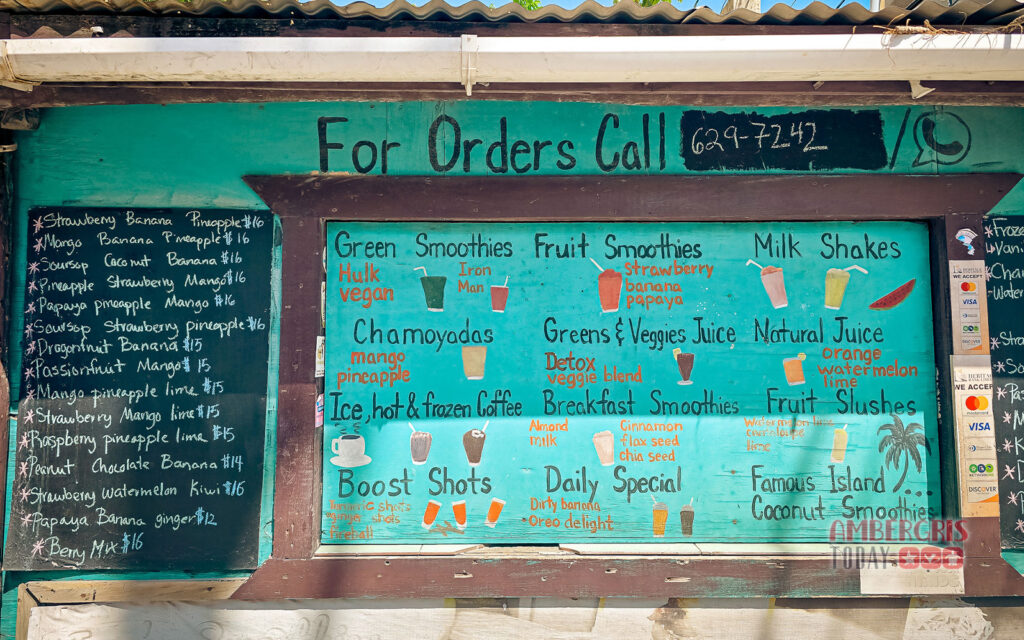 For Orders Call 629-7242 /
*Strawberry Banana Pineapple $16
*Mango Banana Pineapple $16
*Soursop Coconut Banana $16
*Pineapple Strawberry Mango $16
*Papaya pineapple Mango $16
*Soursop Strawberry pineapple $16
*Dragonfruit Banana $15
*Passionfruit Mango $15
*Mango pineapple lime $15
*Strawberry Mango lime $15
*Raspberry pineapple lima $15
*Peanut Chocolate Banana $14
*Strawberry Watermelon Kiwi $16
*Papaya Banana ginger $12
*Berry Mix $16
Green Smoothies
Hulk
vegan
Iron
Man
Fruit Smoothies
Strawberry
banana
papaya
Milk Shakes
Chamoyadas
mango
pineapple
Greens & Veggies Juice
Detox
veggie blend
Natural Juice
orange
watermelon
lime
Ice, hot & frozen Coffee
Breakfast Smoothies
Almond
milk
Cinnamon
flax seed
chia seed
Fruit Slushes
Watermelon lime
lime
Boost Shots
Turmeric shots
ginger shots
fireball
Daily Special
Dirty banana
Oreo delight
Famous Island
Coconut Smoothies
WE ACCEPT
VISA
DISCOVER
WE ACCEPT
VISA
DISCOVER
AMBERGRIS
TODAY